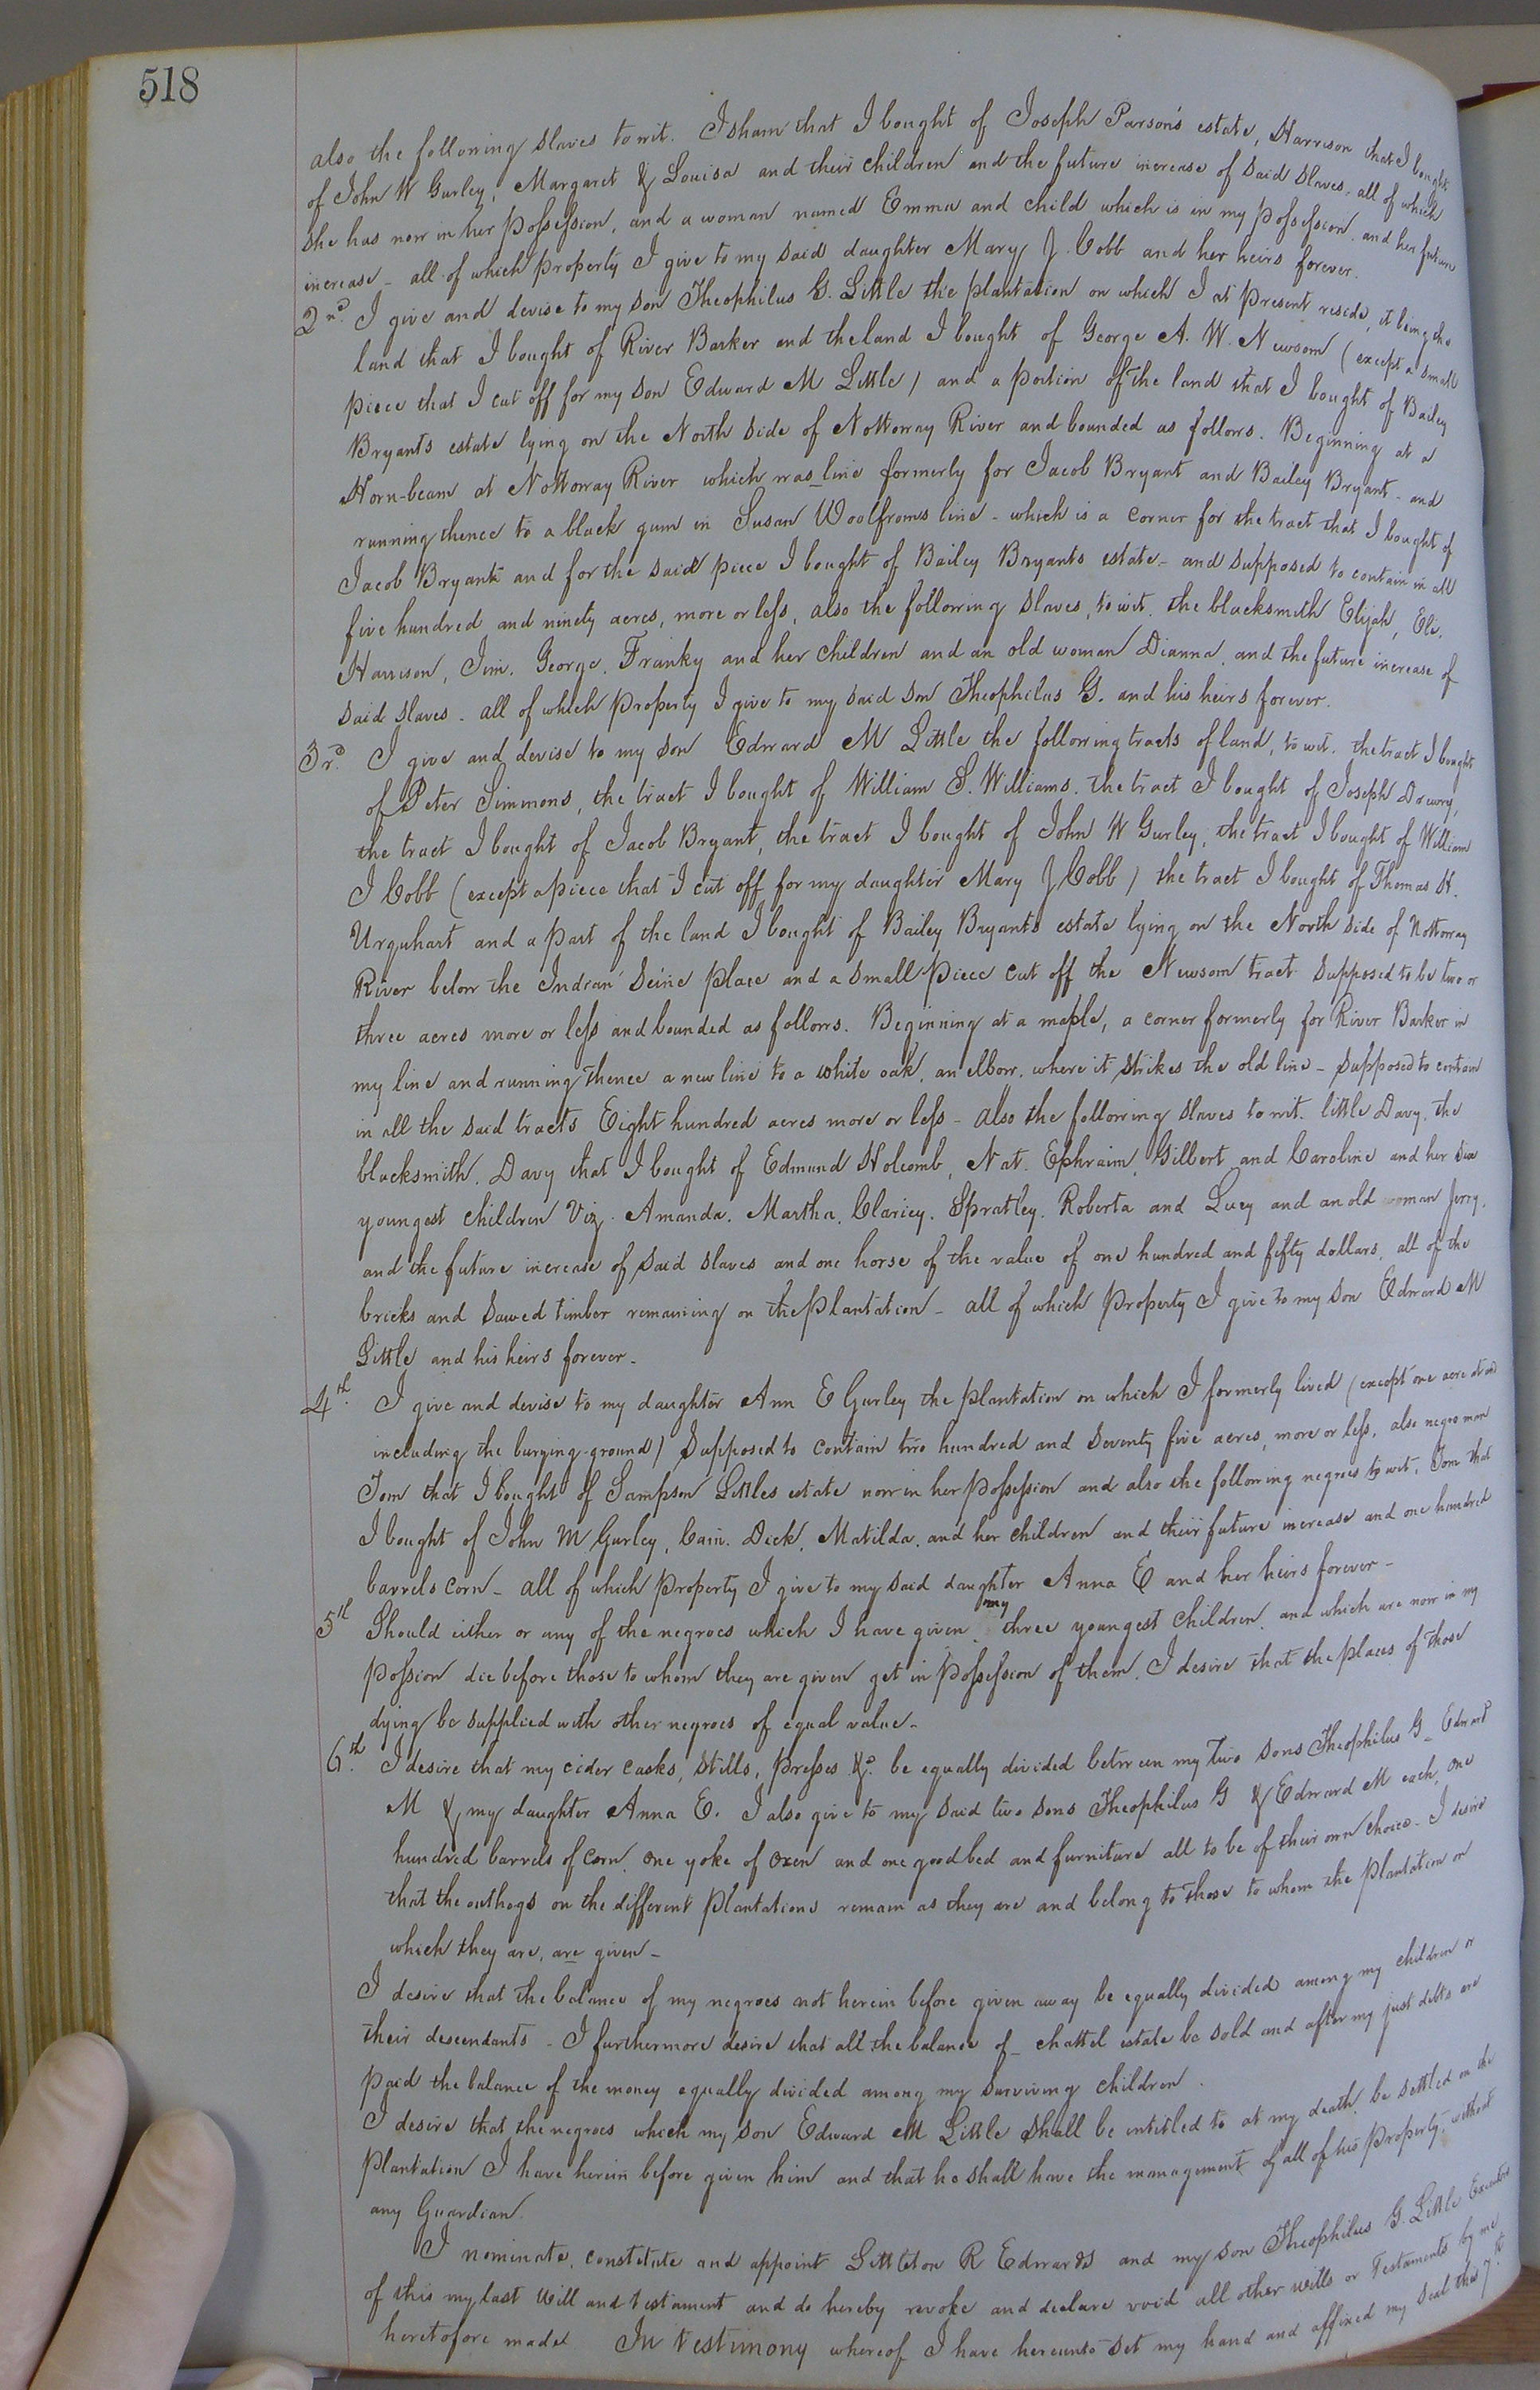 518
also the following slaves to wit. Isham that I bought of Joseph Parson's estate, Harrison that I bought
of John W Gurley, Margaret & Louisa and their children and the future increase of said slaves, all of which
she has now in her possession, and a woman named Emma and child which is in my possession and her future
increase - all of which property I give to my said daughter Mary J. Cobb and her heirs forever.
2nd. I give and devise to my son Theophilus G. Little the plantation on which I at present reside, it being the
land that I bought of River Barker and the land I bought of George A. W. Newsom (except a small
piece that I cut off for my son Edward M Little) and a portion of the land that I bought of Bailey
Bryants estate lying on the North side of Nottoway River and bounded as follows. Beginning at a
Horn-beam at Nottoway River which was line formerly for Jacob Bryant and Bailey Bryant - and
running thence to a black gum in Susan Woolfroms line - which is a corner for the tract that I bought of
Jacob Bryant and for the said piece I bought of Bailey Bryants estate - and supposed to contain in all
five hundred and ninety acres, more or less, also the following slaves, to wit. the blacksmith Elijah, Eli.
Harrison, Jim. George. Franky and her children and an old woman Dianna, and the future increase of
said slaves - all of which property I give to my said son Theophilus G. and his heirs forever.
3rd. I give and devise to my son Edward M Little the following tracts of land, to wit. the tract I bought
of Peter Simmons, the tract I bought of William S. Williams. the tract I bought of Joseph Drewry,
the tract I bought of Jacob Bryant, the tract I bought of John W Gurley, the tract I bought of William
I Cobb (except a piece that I cut off for my daughter Mary J Cobb) the tract I bought of Thomas H.
Urquhart and a part of the land I bought of Bailey Bryants estate lying on the North side of Nottoway
River below the Indian Seine place and a small piece cut off the Newsom tract supposed to be two or
three acres more or less and bounded as follows. Beginning at a maple, a corner formerly for River Barker in
my line and running thence a new line to a white oak, an elbow. where it strikes the old line - supposed to contain
in all the said tracts Eight hundred acres more or less - also the following slaves to wit. little Davy, the
blacksmith. Davy that I bought of Edmund Holcomb, Nat. Ephraim, Gilbert and Caroline and her six
youngest children Viz. Amanda. Martha, Claricy. Spratley. Roberta and Lucy and an old woman Jerry,
and the future increase of said slaves and one horse of the value of one hundred and fifty dollars, all of the
bricks and sawed timber remaining on the plantation - all of which property I give to my son Edward M
Little and his heirs forever -
4th. I give and devise to my daughter Ann E Gurley the plantation on which I formerly lived (except one acre at and
including the burying-ground) supposed to contain two hundred and seventy five acres, more or less, also negro man
Tom that I bought of Sampson Littles estate now in her possession and also the following negroes to wit, Tom that
I bought of John M Gurley, Cain. Dick, Matilda, and her children and their future increase and one hundred
barrels corn - all of which property I give to my said daughter Anna E and her heirs forever -
5th Should either or any of the negroes which I have given my three youngest children, and which are now in my
possion die before those to whom they are given get in possession of them, I desire that the places of those
dying be supplied with other negroes of equal value -
6th. I desire that my cider casks, stills, presses &c. be equally divided between my two sons Theophilus G - Edward
M & my daughter Anna E. I also give to my said two sons Theophilus G & Edward M each, one
hundred barrels of corn, one yoke of oxen and one good bed and furniture all to be of their own choice - I desire
that the outhogs on the different plantations remain as they are and belong to those to whom the plantation on
which they are, are given -
I desire that the balance of my negroes not herein before given away be equally divided among my children or
their descendants - I furthermore desire that all the balance of - chattel estate be sold and after my just debts are
paid the balance of the money equally divided among my surviving children.
I desire that the negroes which my son Edward M Little shall be intitled to at my death be settled on the
plantation I have herein before given him and that he shall have the management of all of his property, without
any Guardian.
I nominate, constitute and appoint Littleton R Edwards and my son Theophilus G. Little Executors
of this my last Will and testament and do hereby revoke and declare void all other wills or Testaments by me
heretofore made. In testimony whereof I have hereunto set my hand and affixed my seal this 7th